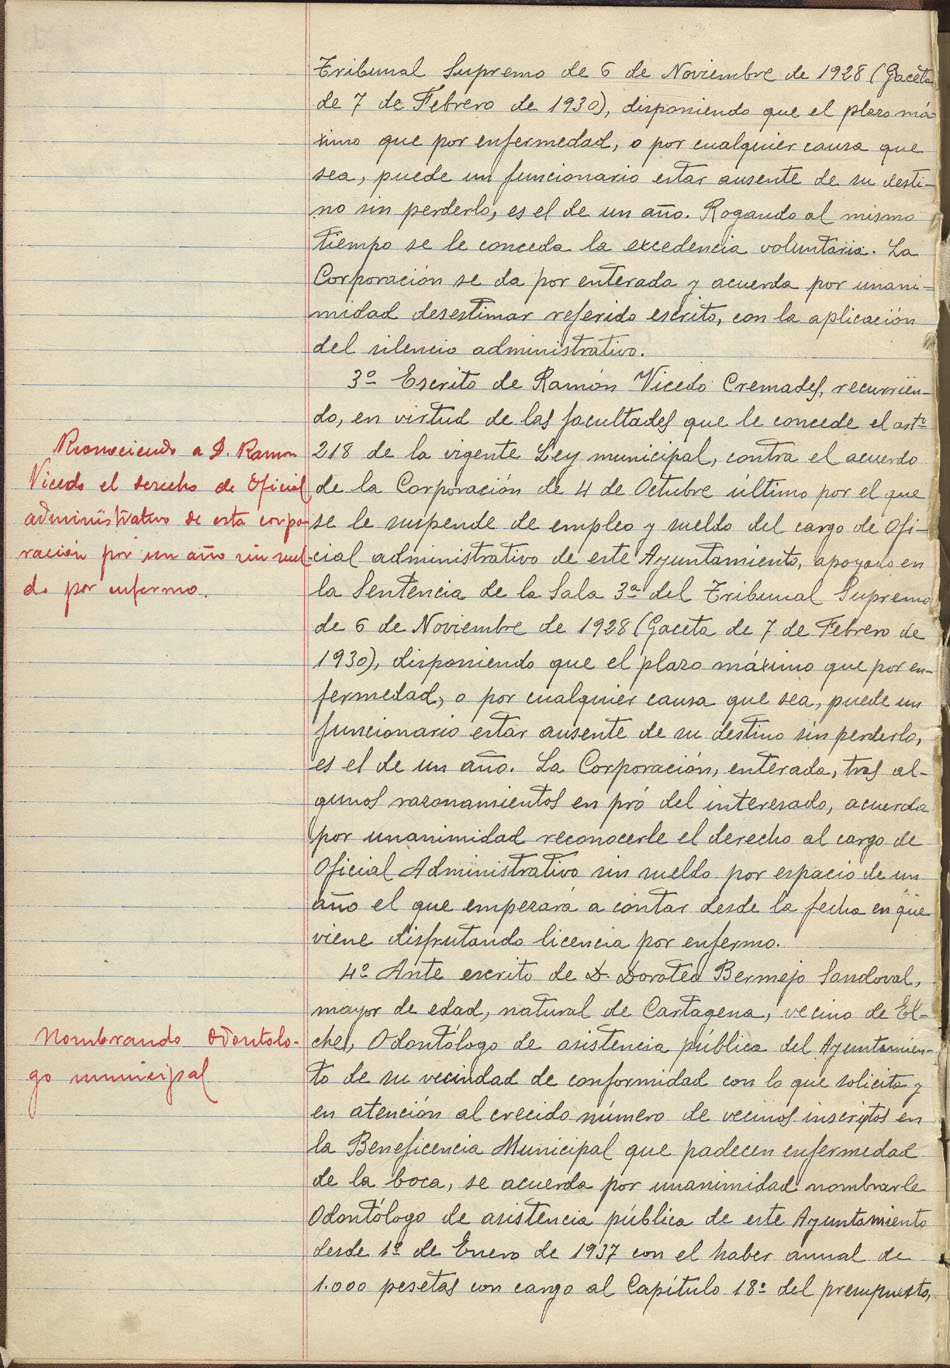 Tribunal Supremo de 6 de Noviembre de 1928 (Gaceta
de 7 de Febrero de 1930), disponiendo que el plazo má-
ximo que por enfermedad, o por cualquier causa que
sea, puede un funcionario estar ausente de su desti-
no sin perderlo, es el de un año. Rogando al mismo
tiempo se le conceda la excedencia voluntaria. La
Corporación se da por enterada y acuerda por unani-
midad desestimar referido escrito, con la aplicación
del silencio administrativo.
3º Escrito de Ramón Vicedo Cremades, recurrien-
do, en virtud de las facultades que le concede el artº
218 de la vigente Ley municipal, contra el acuerdo
de la Corporación de 4 de Octubre último por el que
se le suspende de empleo y sueldo del cargo de Ofi-
cial administrativo de este Ayuntamiento, apoyado en
la Sentencia de la Sala 3ª del Tribunal Supremo
de 6 de Noviembre de 1928 (Gaceta de 7 de Febrero de
1930), disponiendo que el plazo máximo que por en-
fermedad, o por cualquier causa que sea, puede un
funcionario estar ausente de su destino sin perderlo,
es el de un año. La Corporación, enterada, tras al-
gunos razonamientos en pró del interesado, acuerda
por unanimidad reconocerle el derecho al cargo de
Oficial Administrativo sin sueldo por espacio de un
año el que empezará a contar desde la fecha en que
viene disfrutando licencia por enfermo.
4º Ante escrito de D. Doroteo Bermejo Sandoval,
mayor de edad, natural de Cartagena, vecino de El-
che, Odontólogo de asistencia pública del Ayuntamien-
to de su vecindad de conformidad con lo que solicita y
en atención al crecido número de vecinos inscriptos en
la Beneficencia Municipal que padecen enfermedad
de la boca, se acuerda por unanimidad nombrarle
Odontólogo de asistencia pública de este Ayuntamiento
desde 1º de Enero de 1937 con el haber anual de
1.000 pesetas con cargo al Capítulo 18º del presupuesto,
Reconociendo a D. Ramon
Vicedo el derecho de Oficial
administrativo de esta corpo-
ración por un año sin suel-
do por enfermo.
Nombrando Odontolo-
go municipal